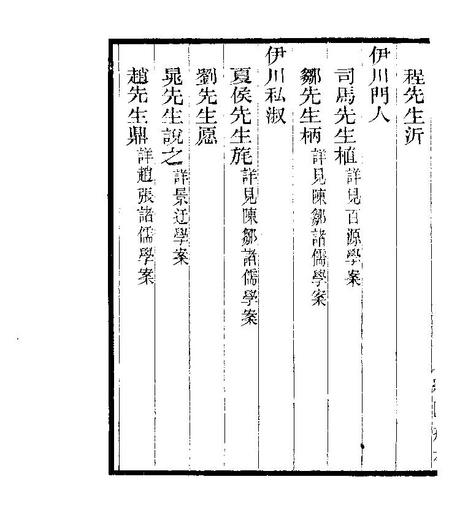 程先生沂
伊川門人
司馬先生植詳見百源學案
鄒先生柄詳見陳鄒諸儒學案
伊川私淑
夏侯先生旄詳見陳鄒諸儒學案
劉先生愿
晁先生說之詳景迂學案
趙先生鼎詳趙張諸儒學案